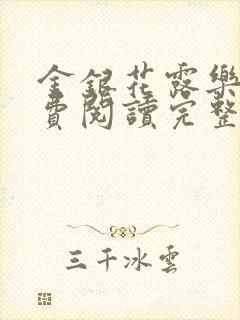 金銀花露樂
費閱讀完整
三千冰雲